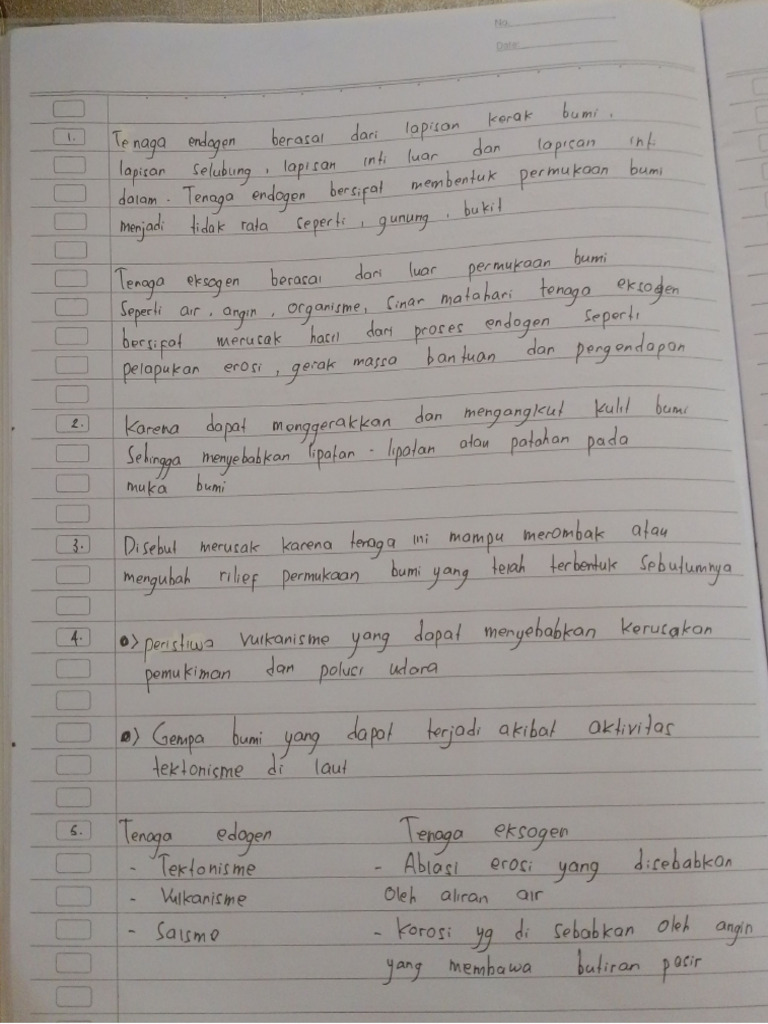 No.
Date
1. Tenaga endogen berasal dari lapisan kerak bumi,
lapisan selubung, lapisan inti luar dan lapisan inti
dalam. Tenaga endogen bersifat membentuk permukaan bumi
menjadi tidak rata seperti, gunung, bukit
Tenaga eksogen berasal dari luar permukaan bumi
Seperti air, angin, organisme, Sinar matahari tenaga eksogen
bersifat merusak hasil dari proses endogen seperti
pelapukan erosi, gerak massa bantuan dan pergendapan
2. Karena dapat menggerakkan dan mengangkut kulit bumi
Sehingga menyebabkan lipatan - lipatan atau patahan pada
muka bumi
3. Disebut merusak karena tenaga ini mampu merombak atau
mengubah rilief permukaan bumi yang telah terbentuk Sebulumnya
4. •) peristiwa vulkanisme yang dapat menyebabkan kerusakan
pemukiman dan polusi udara
•) Gempa bumi yang dapat terjadi akibat aktivitas
tektonisme di laut
5. Tenaga edogen Tenaga eksogen
- Tektonisme - Ablasi erosi yang disebabkan
- Vulkanisme Oleh aliran air
- Saismo - Korosi yg di sebabkan oleh angin
yang membawa butiran pasir